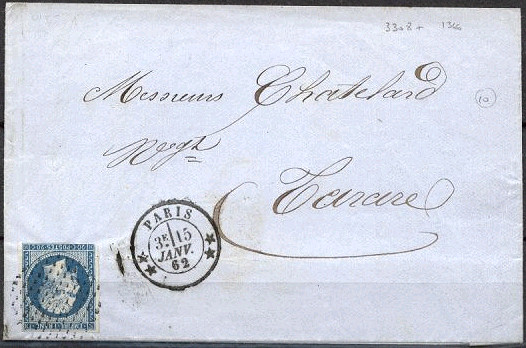 3308+ 13k
Messieurs Chatelard
10
Negts
Tarare
PARIS
3E 15
JANV.
62